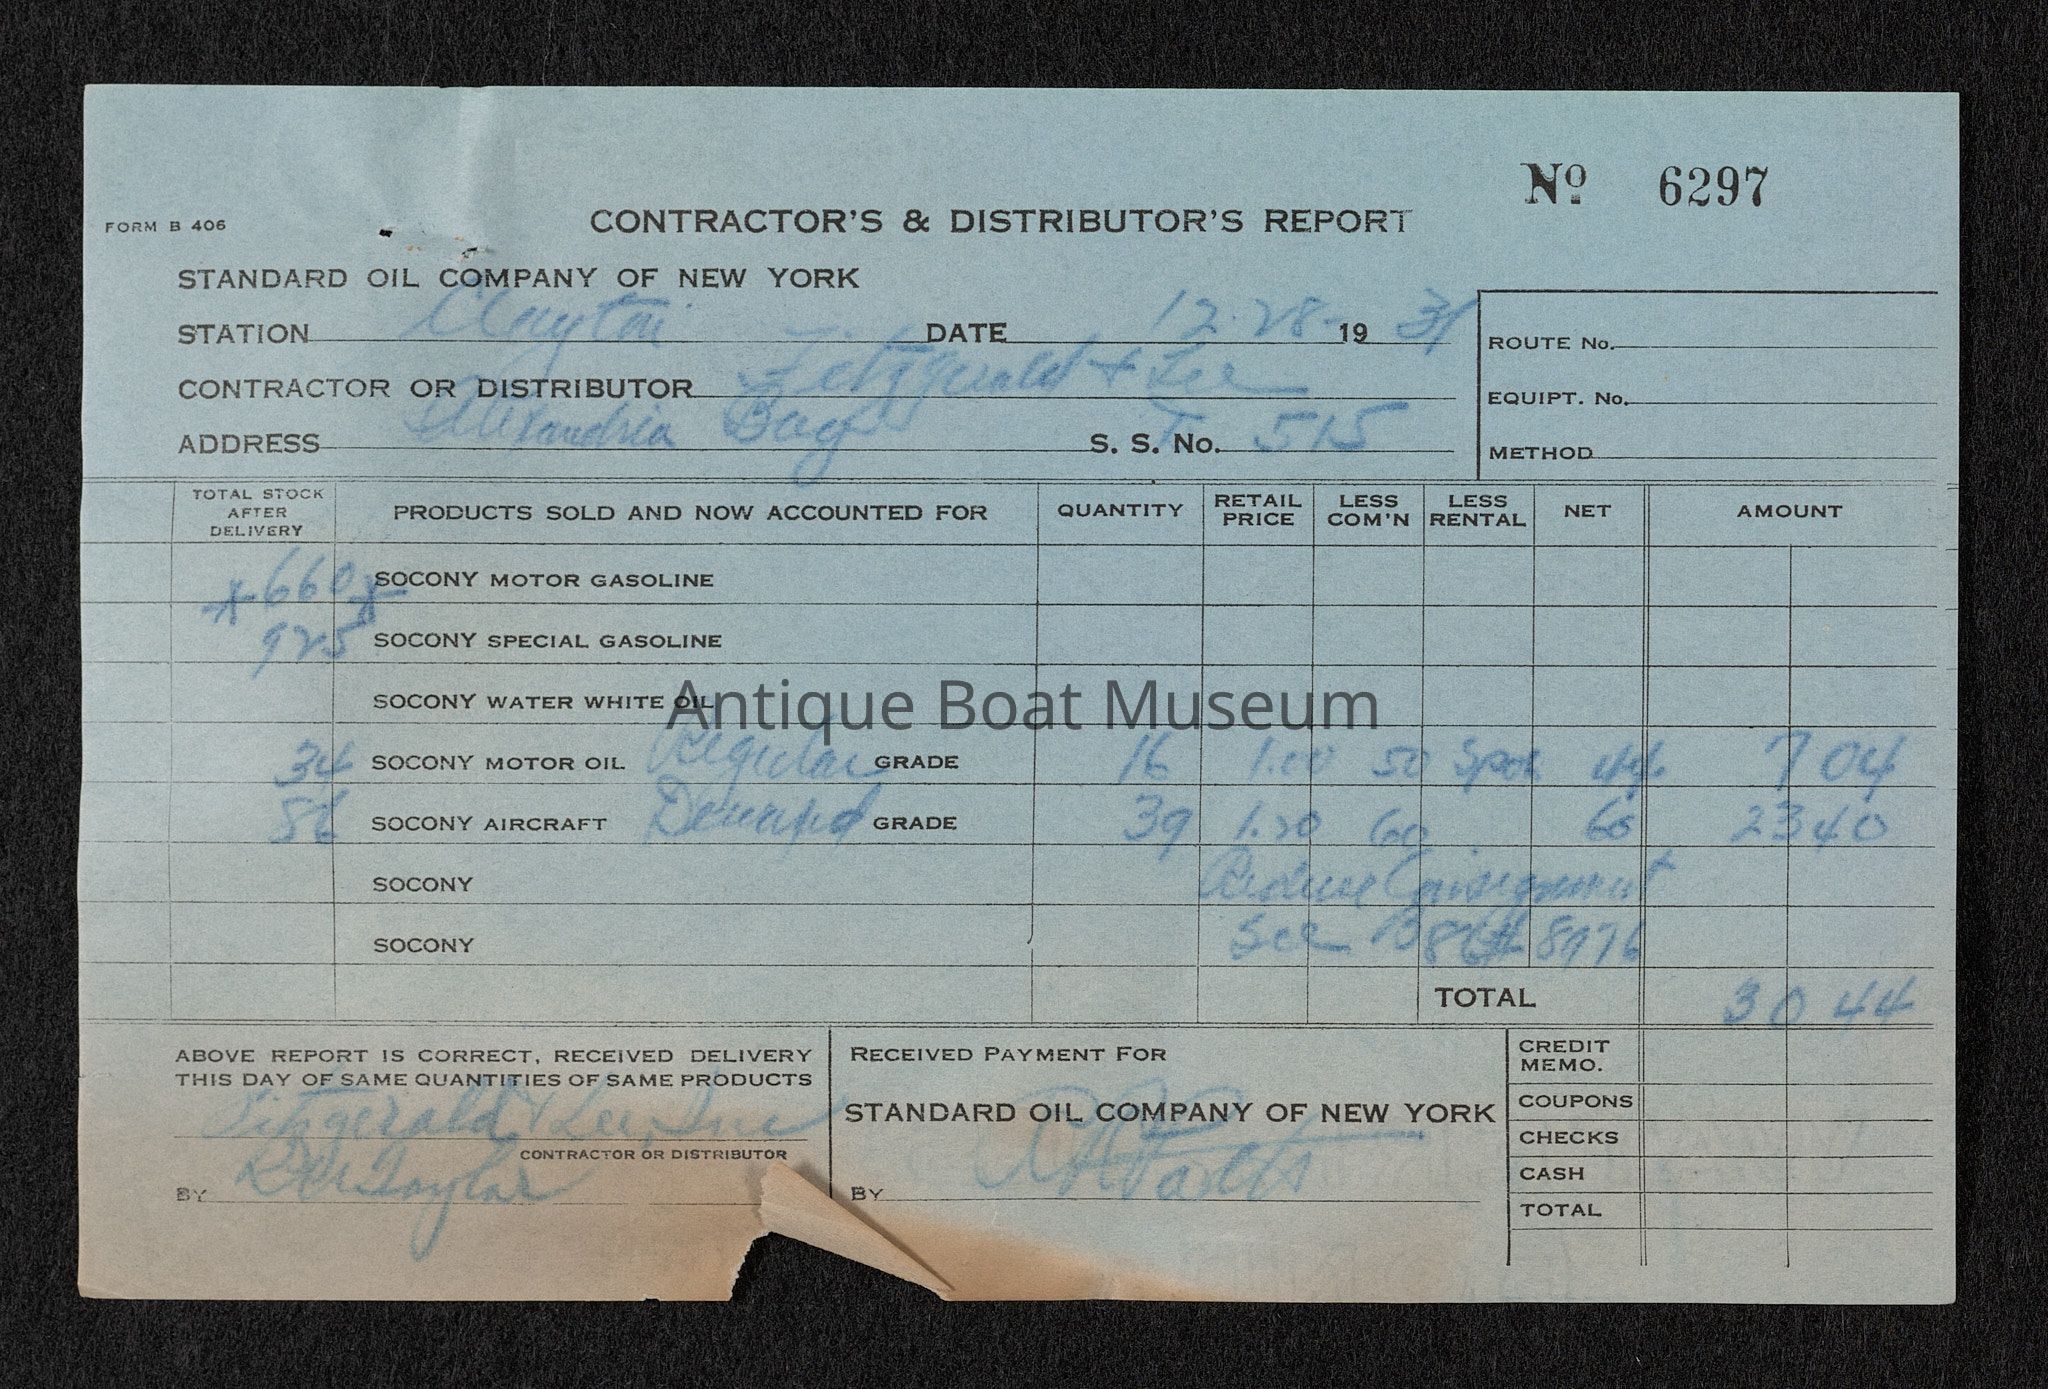 No 6297
FORM B 406
CONTRACTOR'S & DISTRIBUTOR'S REPORT
STANDARD OIL COMPANY OF NEW YORK
STATION Clayton DATE 12-28- 19 31
CONTRACTOR OR DISTRIBUTOR Fitzgerald + Lee
ADDRESS Alexandria Bay S. S. No. T 515
ROUTE No.
EQUIPT. No.
METHOD
TOTAL STOCK AFTER DELIVERY PRODUCTS SOLD AND NOW ACCOUNTED FOR QUANTITY RETAIL PRICE LESS COM'N LESS RENTAL NET AMOUNT
x 660 x SOCONY MOTOR GASOLINE
925 SOCONY SPECIAL GASOLINE
SOCONY WATER WHITE OIL
Antique Boat Museum
34 SOCONY MOTOR OIL Regular GRADE 16 1.00 50 44 7 04
56 SOCONY AIRCRAFT GRADE 39 1.20 60 60 23 40
SOCONY Reduce Consignment
SOCONY See B 86 # 8976
TOTAL 30 44
ABOVE REPORT IS CORRECT, RECEIVED DELIVERY
THIS DAY OF SAME QUANTITIES OF SAME PRODUCTS
Fitzgerald & Lee, Inc
CONTRACTOR OR DISTRIBUTOR
BY Taylor
RECEIVED PAYMENT FOR
STANDARD OIL COMPANY OF NEW YORK
BY
CREDIT MEMO.
COUPONS
CHECKS
CASH
TOTAL